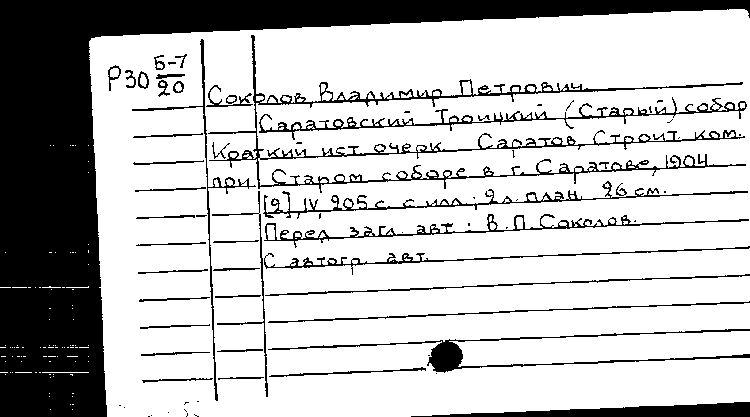 Р30 Б-7/20
Соколов, Владимир Петрович.
Саратовский Троицкий (Старый) собор
Краткий ист. очерк. Саратов, Строит. ком.
при Старом соборе в г. Саратове, 1904.
[2], IV, 205 с. с илл.; 2 л. план. 26 см.
Перед загл. авт.: В.П. Соколов.
С автогр. авт.